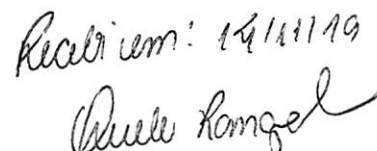 Recebi em: 14/11/19
Rangel